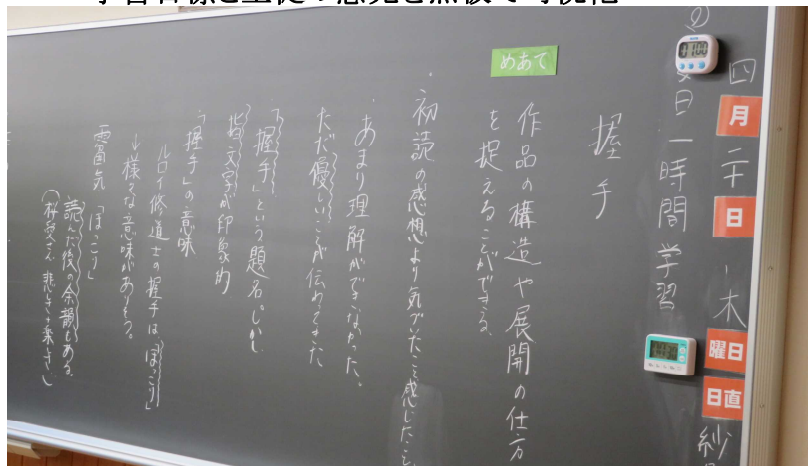 学習目標と生徒の意見を黒板で可視化
四月二十日 木曜日 日直 紗
日一時間学習
握手
めあて
作品の構造や展開の仕方
を捉えることができる。
・初読の感想より気づいたこと感じたこと
・あまり理解ができなかった。
ただ優しいことが伝わってきた
・「握手」という題名。しかし
指文字が印象的
・「握手」の意味
ルロイ修道士の握手は「ほっこり」
↓様々な意味がありそう。
雰囲気「ほっこり」
読んだ後、余韻もある。
悲しさ